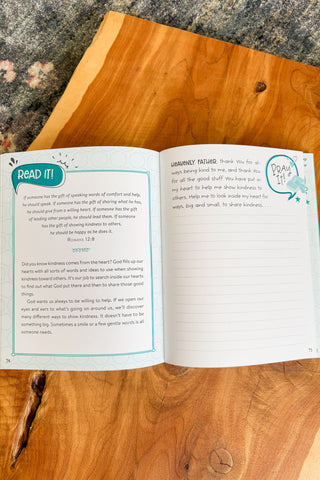 READ IT!
If someone has the gift of speaking words of comfort and help,
he should speak. If someone has the gift of sharing what he has,
he should give from a willing heart. If someone has the gift
of leading other people, he should lead them. If someone
has the gift of showing kindness to others,
he should be happy as he does it.
ROMANS 12:8
Did you know kindness comes from the heart? God fills up our
hearts with all sorts of words and ideas to use when showing
kindness toward others. It's our job to search inside our hearts
to find out what God put there and then to share those good
things.
God wants us always to be willing to help. If we open our
eyes and ears to what's going on around us, we'll discover
many different ways to show kindness. It doesn't have to be
something big. Sometimes a smile or a few gentle words is all
someone needs.
74
HEAVENLY FATHER, thank You for al-
ways being kind to me, and thank You
for all the good stuff You have put in
my heart to help me show kindness to
others. Help me to look inside my heart for
ways, big and small, to share kindness.
PRAY
IT!
75